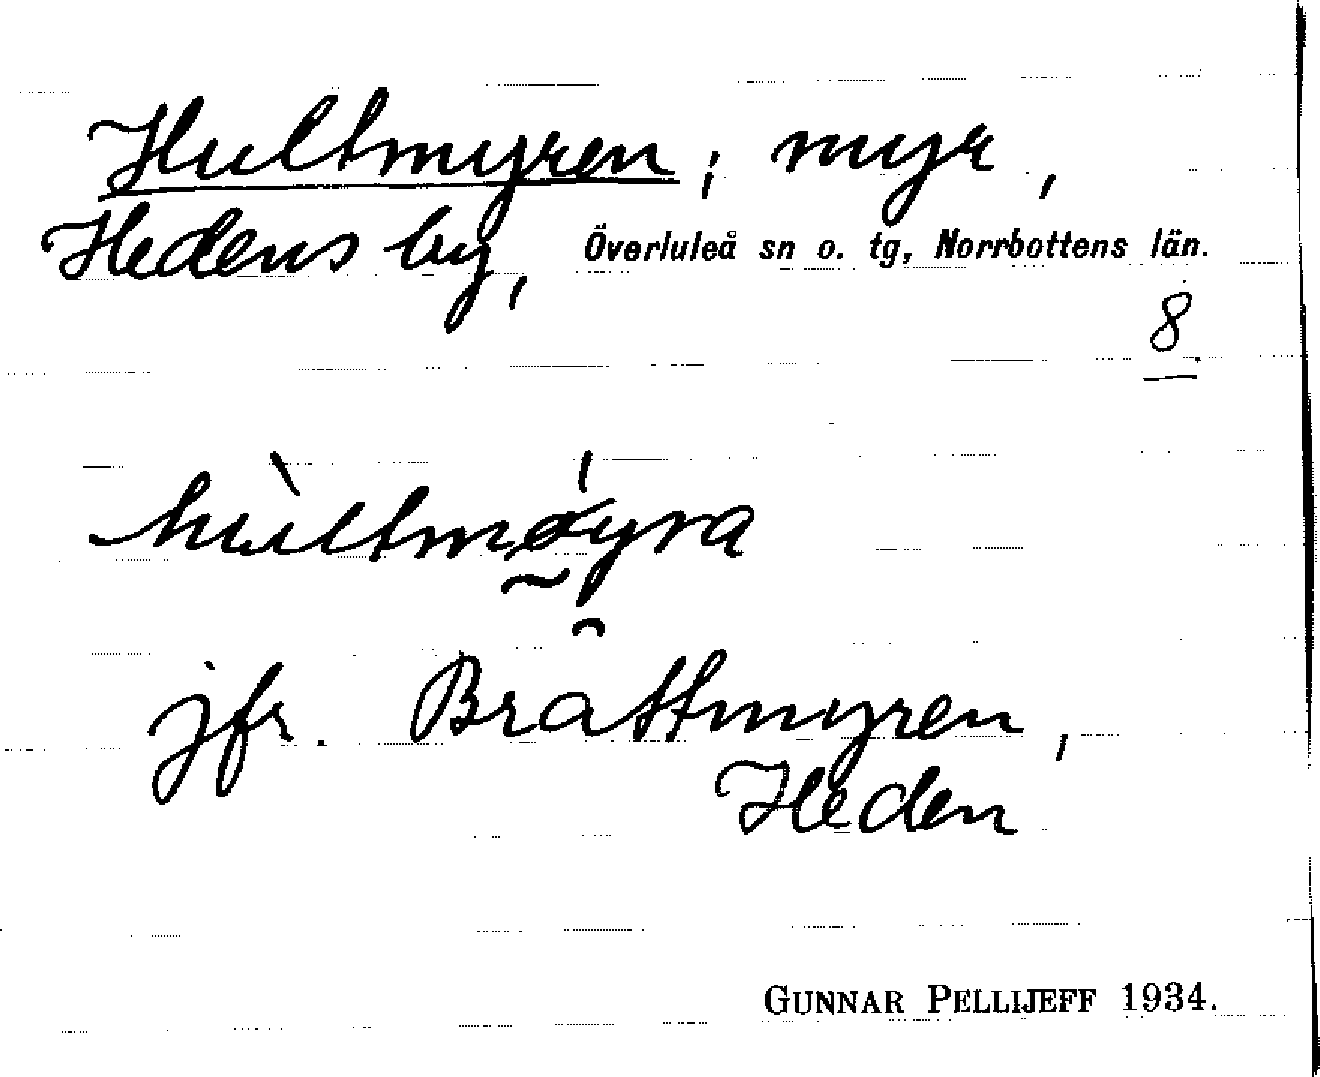 Hultmyren, myr,
Hedens by, Överluleå sn o. tg, Norrbottens län.
8
hùltmǿyra
jfr. Brattmyren,
Heden
GUNNAR PELLIJEFF 1934.